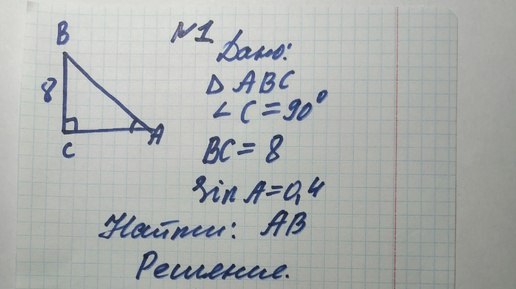 N1
Дано:
Δ ABC
∟C=90°
BC=8
Sin A=0,4
Найти: AB
Решение.
B
8
C
A